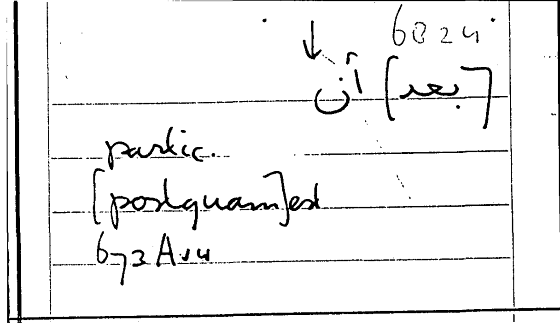 6824
[بعد] أن
partic.
[postquam] est
673 A14